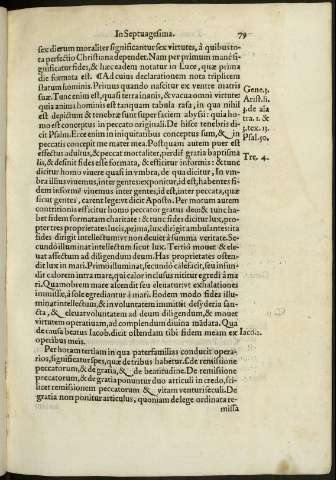 In Septuagesima. 79
sex dierum moraliter significantur sex virtutes, à quibus to-
ta perfectio Christiana dependet. Nam per primum mane si-
gnificatur fides, & hæc eadem notatur in Luce, quæ prima
die formata est. ¶Ad cuius declarationem nota triplicem
statum hominis. Primus quando nascitur ex ventre matris
suæ. Tunc enim est, quasi terra inanis, & vacua omni virtute
quia animus hominis est tanquam tabula rasa, in qua nihil
est depictum & tenebræ sunt super faciem abyssi: quia ho-
mo est conceptus in peccato originali. De hisce tenebris di-
cit Psalm. Ecce enim in iniquitatibus conceptus sum, &_in
peccatis concepit me mater mea. Postquam autem puer est
effectus adultus, & peccat mortaliter, perdit gratia baptisma
lis, & desinit fides esse formata, & efficitur informis: & tunc
dicitur homo viuere quasi in vmbra, de qua dicitur, In vm-
bra illius viuemus, inter gentes: exponitur, id est, habentes fi-
dem informem viuemus inter gentes, id est, inter peccata, quæ
sicut gentes, carent lege, vt dicit Aposto. Per motum autem
contritionis efficitur homo peccator gratus deo & tunc ha-
bet fidem formatam charitate: & tunc fides dicitur lux, pro-
pter tres proprietates lucis, primo, lux dirigit ambulantes: ita
fides dirigit intellectum vt non deuiet à summa veritate. Se-
cundo illuminat intellectum sicut lux. Tertio mouet & ele-
uat affectum ad diligendum deum. Has proprietates osten-
dit lux in mari. Primo illuminat, secundo calefacit, seu infun-
dit calorem intra mare, qui calor inclusus nititur egredi à ma
ri. Quamobrem mare ascendit seu eleuatur vt exhalationes
immissæ, à sole egrediantur à mari. Eodem modo fides illu-
minat intellectum, & in voluntatem immittit desyderia san-
cta, &_eleuat voluntatem ad deum diligendum, & mouet
virtutem operatiuam, ad complendum diuina mādata. Qua
de causa beatus Iacob. dicit ostendam tibi fidem meam ex
operibus meis.
Per horam tertiam in qua paterfamilias conducit opera-
rios, significatur spes, quæ de tribus habetur. s. de remissione
peccatorum, & de gratia, &_de beatitudine. De remissione
peccatorum, & de gratia ponuntur duo articuli in credo, sci-
licet remissionem peccatorum &_vitam venturi seculi. De
gratia non ponitur articulus, quoniam de lege ordinata re-
missa
Gene. 1.
Arist. li.
3. de aīa
tra. 1. &
3. tex. 15.
Psal. 50.
Tre. 4.
Iaco. 2.